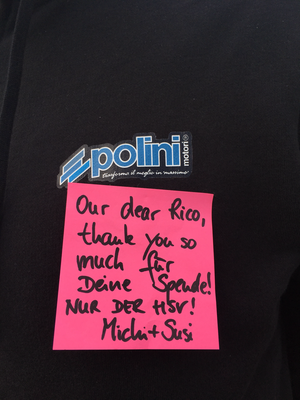 polini
motori®
trasforma il meglio in massimo
Our dear Rico,
thank you so
much für
Deine Spende!
NUR DER HSV!
Michi+Susi